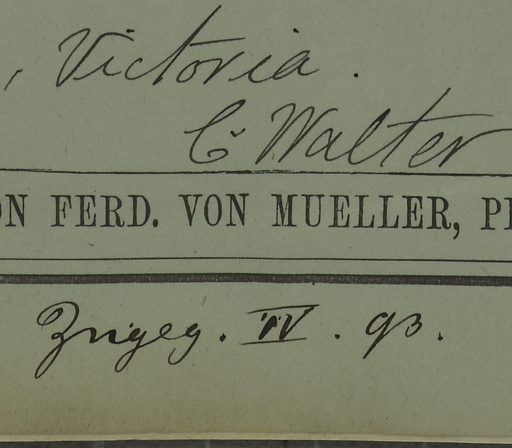 , Victoria.
C. Walter
ON FERD. VON MUELLER, PH
Zugeg. IV. 93.